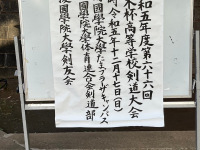 和五年度第六十六回
杯高等学校剣道大会
時 令和五年十二月十七日(日)
國學院大學たまプラーザキャンパス
國學院大學体育連合会剣道部
國學院大學剣友会